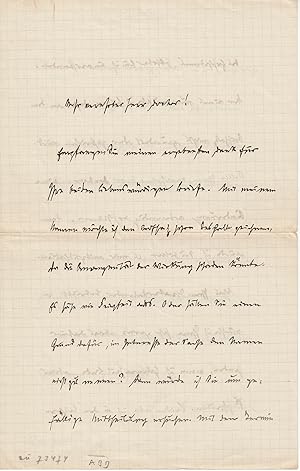 Sehr verehrter Herr Doctor!
Empfangen Sie meinen ergebensten Dank für
Ihre beiden liebenswürdigen Briefe. Mit meinem
Namen möchte ich den Aufsatz schon deshalb zeichnen,
da die Anonymität der Wirkung schaden könnte.
Es sähe wie Feigheit aus. Oder haben Sie einen
Grund dafür, im Interesse der Sache den Namen
nicht zu nennen? Dann würde ich Sie um ge-
fällige Mittheilung ersuchen. Mit dem Termin